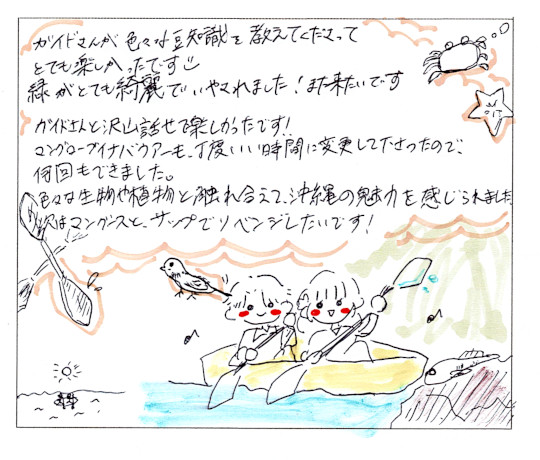 ガイドさんが色々な豆知識を教えてくださって
とても楽しかったです
緑がとても綺麗でいやされました！また来たいです
ガイドさんと沢山話せて楽しかったです！
マングローブイナバウアーも、丁度いい時間に変更して下さったので、
何回もできました。
色々な生物や植物と触れ合えて、沖縄の魅力を感じられました
次はマングースと、サップでリベンジしたいです！